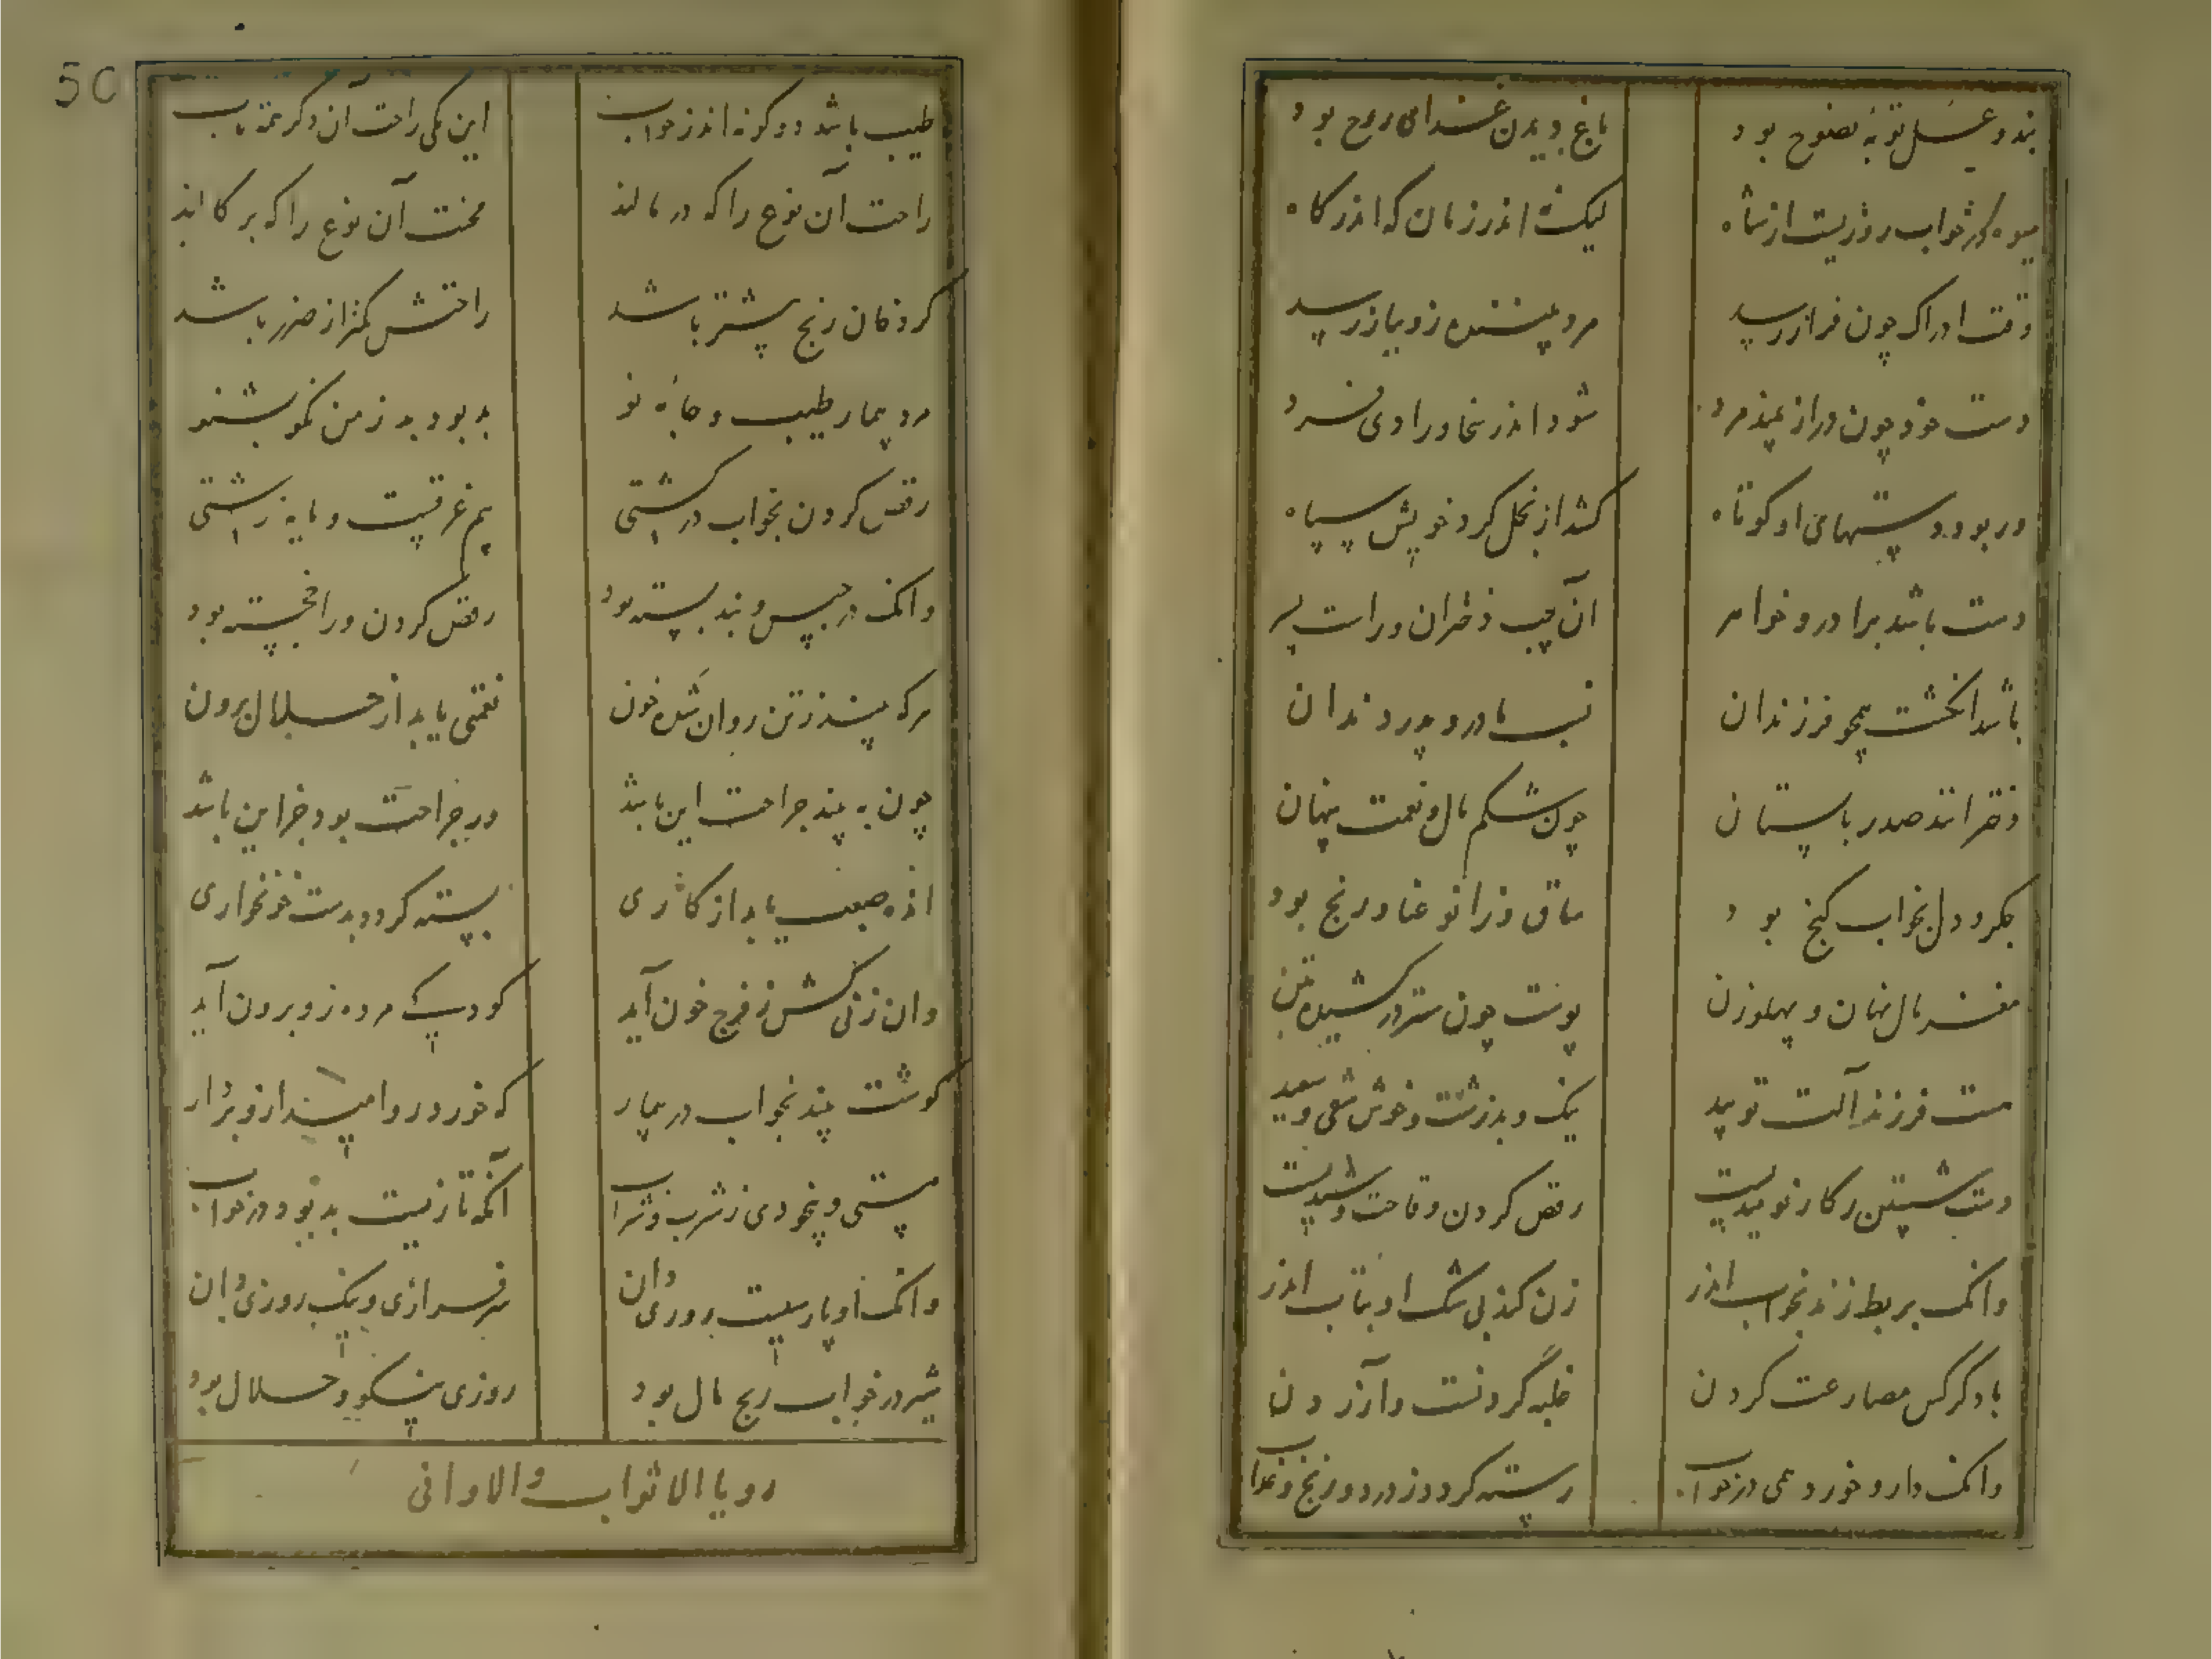 بند و غسل توبهٔ نصوح بود
باغ و بدن غذای روح بود
میوه در خواب روزیست از شاه
لیک اندر زمان که اندر گاه
وقت ادراک چون فراز رسید
مرد بیننده زو بیاز رسید
دست خود چون دراز بیند مرد
شود اندر سخا و رادی فرد
ور بود دستهای او کوتاه
کشد از بخل کرد خویش سپاه
دست باشد برادر و خواهر
آن چپ دختران و راست پسر
باشد انگشت همچو فرزندان
نسب مادر و پدر دندان
دختر انند صدر با پستان
چون شکم مال و نعمت پنهان
جگر و دل بخواب گنج بود
ساق و زانو عنا و رنج بود
مغز مال نهان و پهلو زن
پوست چون ستر در کشیده بتن
هست فرزند آلت تولید
نیک و بد زشت و خوش شقی و سعید
دست شستن ز کار نومیدیست
رقص کردن وقاحت و شیدیست
وانک بربط زند بخواب اندر
زن کند بی شک او بتاب اندر
با دگر کس مصارعت کردن
غلبه کردنست و آزردن
وانک دارو خورد همی در خواب
رسته گردد ز درد و رنج و عذاب
طیب باشد دو گونه اندر خواب
این یکی راحت آن دگر همه تاب
راحت آن نوع را که در مالند
محنت آن نوع را که بر کالند
گر دخان رنج بیشتر باشد
راحتش کمتر از ضرر باشد
مرد بیمار طیب و جامهٔ نو
بد بود بد ز من نکو بشنو
رقص کردن بخواب در کشتی
بیم غرقیست و مایهٔ زشتی
وانک در حبس و بند بسته بود
رقص کردن ورا خجسته بود
هر که بیند ز تن روان شده خون
نعمتی یابد از حلال برون
چون نه بیند جراحت این باشد
ور جراحت بود جز این باشد
اندُه صعب یابد از کاری
بسته گردد بدست خونخواری
وان زنی کش ز فرج خون آید
کودک مرده زو برون آید
گوشت بیند بخواب در بیمار
که خورد رو امید ازو بردار
مستی و بیخودی ز شرب و شراب
آنکه تازیست بد بود در خواب
وانک او پارسیست روزی دان
سرفرازی و نیک روزی دان
شیر در خواب ربح مال بود
روزی نیکو و حلال بود
رویا الاثواب والاوانی
50